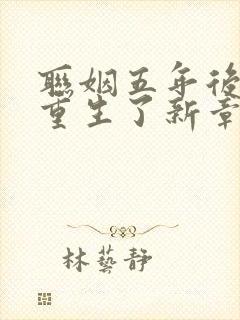 聯姻五年後
重生了新章
林藝靜